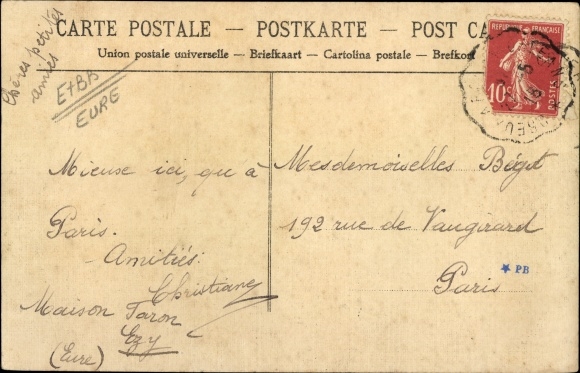 CARTE POSTALE – POSTKARTE – POST CA
Union postale universelle – Briefkaart – Cartolina postale – Brefkort
RÉPUBLIQUE FRANÇAISE
10c
POSTES
Chères petites
amies
E+BA
EURE
Mieux ici, qu à
Paris.
Amitiés.
Christiane
Maison Taron
Ezy
(Eure)
Mesdemoiselles
192 rue de Vaugirard
Paris
PB